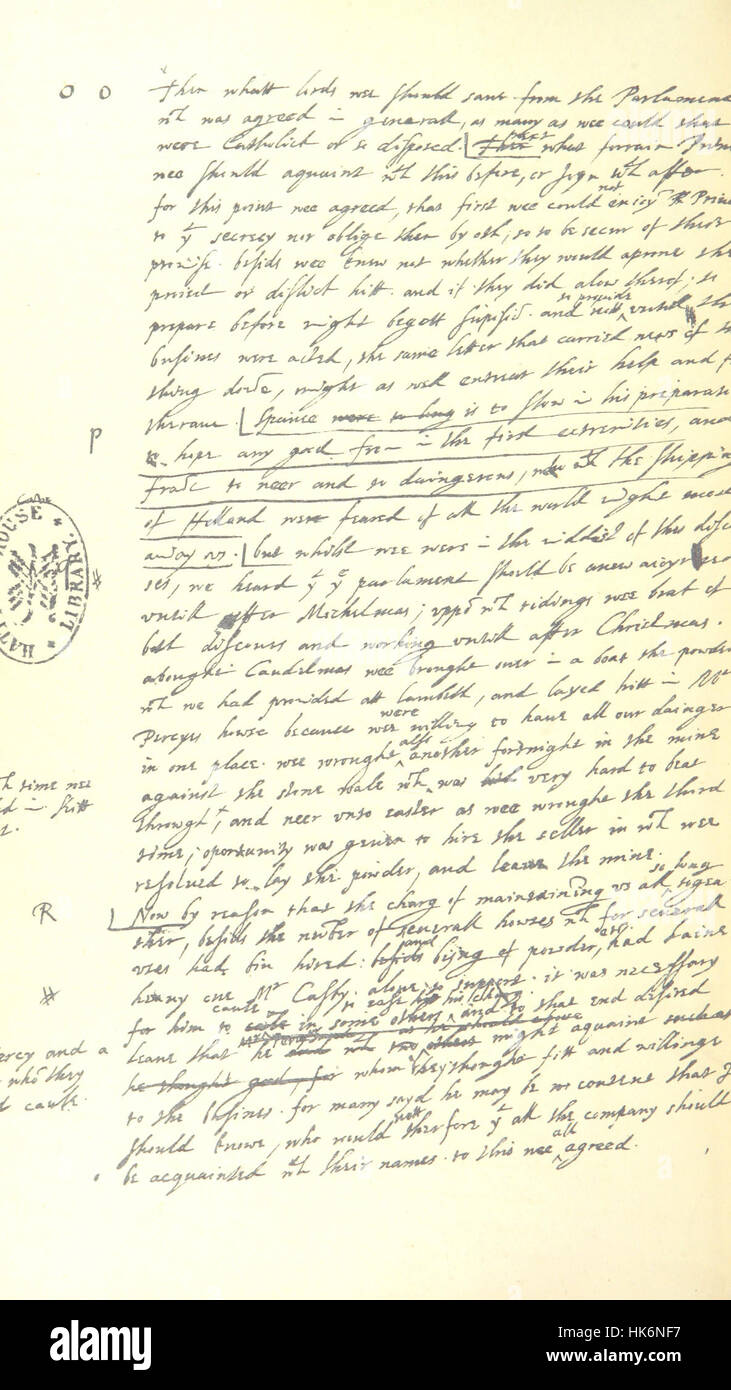 O O Then whatt lords wee should save from the Parlament
wch was agreed in generall, as many as wee could that
were Catholick or so disposed. Then what forrain Prin
wee should aquaint wth this before, or joyn wth after.
for this point wee agreed, that first wee could not enjoyn Prin
to yt secrecy nor oblige them by oth, so to be secur of their
promise. besids wee knew not whether they would aprove the
project or dislict hitt. and if they did alow therof, to
prepare before might begett suspisio. and not so provide untill the
busines were acted, the same letter that carried news of t
thing done, might as well entreat their help and f
therance. Spaine were to long is to slow in his preparati
P hope any good from in the first extremities, and
France to neer and to daingerous, who wth the shipping
of Holland were feared of all the world might mak
away us. but whilst wee were in the middest of thes disc
ses, we heard yt ye parlament should be anew
untill after Michelmas; uppon wch tidings wee
both discours and working untill after Christmas.
abought Candelmas wee brought over in a boat the powder
wch we had provided att Lambeth, and layed hitt in Mr
Percyes howse because wee were willing to have all our dainger
in one place. wee wrought also another fortnight in the mine
against the stone wale wch was very hard to beat
through, and neer unto easter as wee wrought the third
time, oportunity was geven to hire the celler in wch wee
resolved to lay the powder, and leave the mine.
R Now by reason that the charg of maintaining us all so long togea
ther, besids the number of severall howses wch for severall
uses had bin hired, and bying of powder, etc. had laine
heavy one Mr Catsby. alone to support. it was necessary
for him to caule in some others to ease his charg and to that end desired
leave that he might aquaint
he thought good, for whom they thought fitt and willinge
to the busines. for many sayd he may be content that I
should know, who would not therfore yt all the company should
be acquainted wth their names. to this wee all agreed.
th time wee
d in hitt
t.
ercy and a
whō they
caule.
HOUSE LIBRARY HATF
alamy stock photo
Image ID: HK6NF7
www.alamy.com